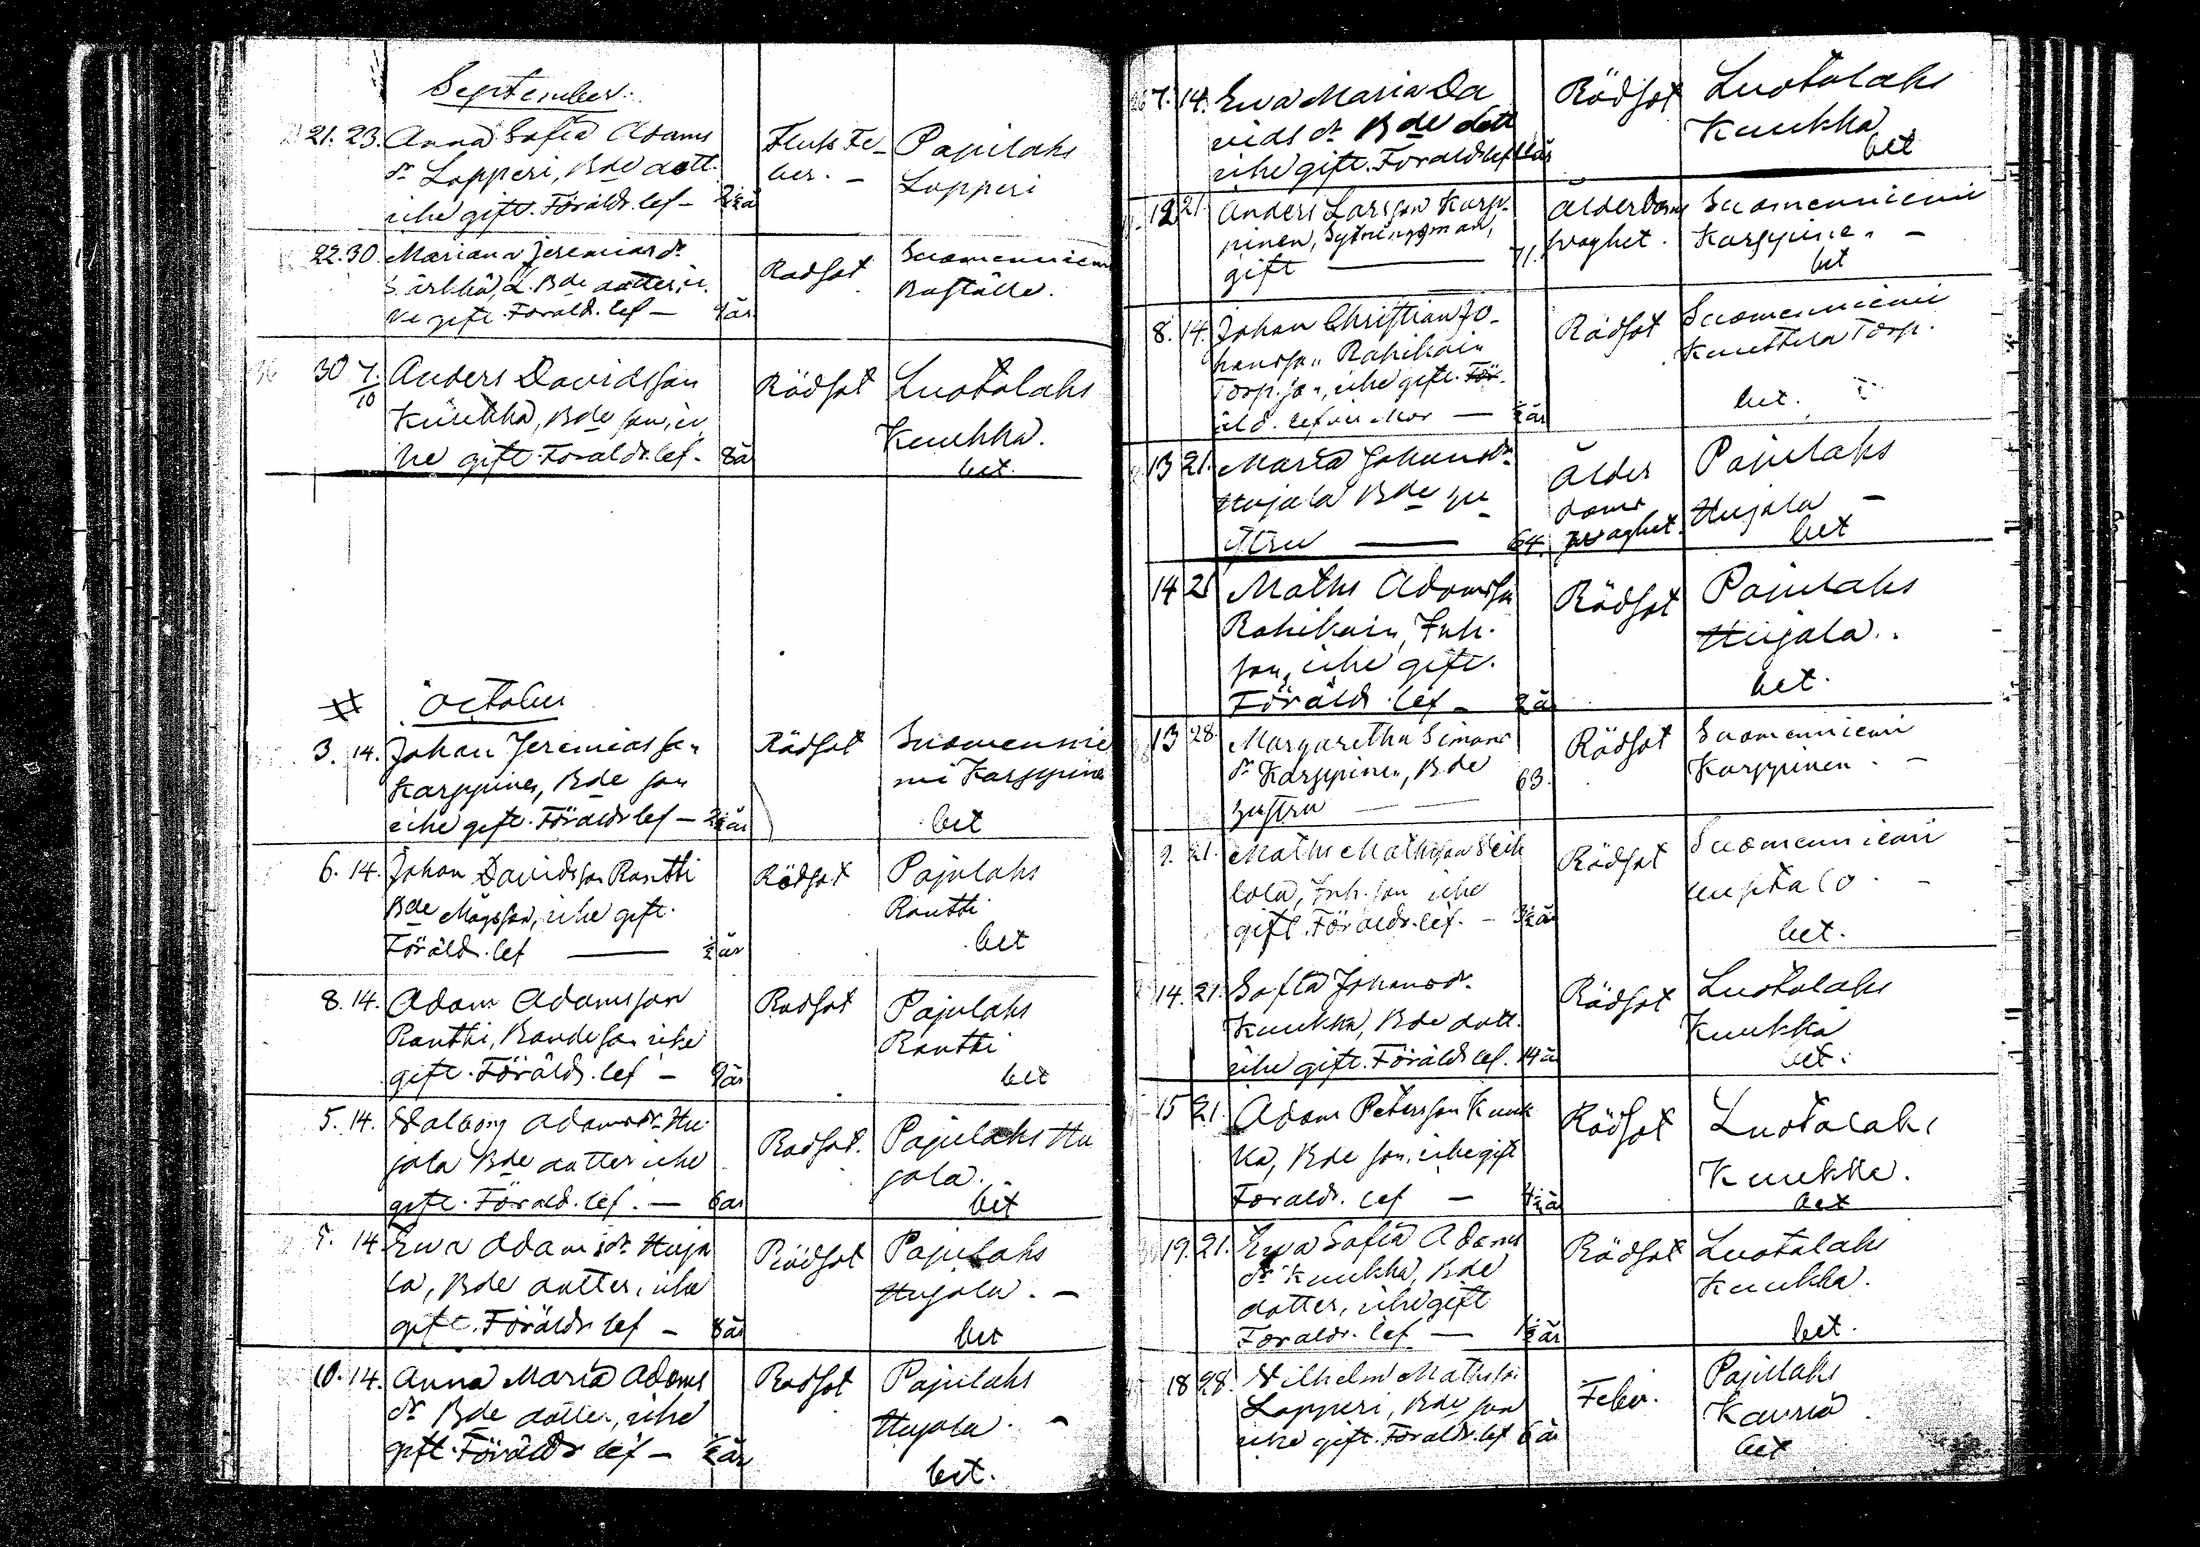 September.
21. 23. Anna Sofia Adams
dr Lopperi, Bde dott.
icke gift. Föräldr. lef –
Fluss Fe-
ber. –
Pajulaks
Lopperi
22. 30. Mariana Jeremiasdr
Särkkä, L. Bde dotter, ic
ke gift. Föräld. lef – år
Rödsot
Suomenniemi
Boställe.
30 7/10 Anders Davidsson
Kuukka, Bde son, ic
ke gift. Föräldr. lef. 8 år
Rödsot
Luotolaks
Kuukka.
bet.
October
3. 14. Johan Jeremiasson
Karppinen, Bde son
icke gift. Föräldr lef – 2½ år
Rödsot
Suomennie
mi Karppinen
bet
6. 14. Johan Davidsson Rantti
Bde Mågsson, icke gift.
Föräld. lef — ½ år
Rödsot
Pajulaks
Rantti
bet
8. 14. Adam Adamsson
Rantti, Bonde son icke
gift. Föräldr. lef – år
Rodsot
Pajulaks
Rantti
bet
5. 14. Walborg Adamsdr Hu
jala Bde dotter icke
gift. Föräld. lef. — 6 år
Rodsot.
Pajulaks Hu
jala.
bet
14 Ewa Adamsdr Huja
la, Bde dotter, icke
gift. Föräldr lef – 8 år
Rödsot
Pajulaks
Hujala. –
bet
10. 14. Anna Maria Adams
dr Bde dotter, icke
gift. Föräldr lef – ½ år
Rodsot
Pajulaks
Hujala. –
bet.
7. 14. Ewa Maria Da
vids dr Bde dott
icke gift. Föräldr lef år
Rödsot
Luotolaks
Kuukka
bet
12 21. Anders Larsson Karp-
pinen, Sytningsman,
gift — 71.
Ålderdoms
svaghet.
Suomenniemi
Karppinen –
bet
8. 14. Johan Christian Jo-
hansson Rahikain
Torp. son, icke gift. För-
äld. lef Mor — ½ år
Rödsot
Suomenniemi
Torp.
bet.
13 21. Maria Johansdr
Hujala Bde hu
stru — 64.
Ålder
doms
svaghet.
Pajulaks
Hujala –
bet
14 21 Maths Adamsson
Rahikain, Inh.
son, icke gift.
Föräldr. lef – 2 år
Rödsot
Pajulaks
Hujala.
bet.
13 28. Margaretha Simons
dr Karppinen, Bde
hustru — 63.
Rödsot
Suomenniemi
Karppinen. –
9. 21. Maths Mathsson
lola, Inh. son icke
gift. Föräldr. lef. – 3½ år
Rödsot
Suomenniemi
bet.
14. 21. Sofia Johansdr.
Kuukka, Bde dott.
icke gift. Föräldr lef. 14 år
Rödsot
Luotolaks
Kuukka
bet.
15 21. Adam Petersson Kuuk
ka, Bde son, icke gift
Föräldr. lef – 4½ år
Rödsot
Luotolaks
Kuukka.
bet
19. 21. Ewa Sofia Adams
dr Kuukka, Bde
dotter, icke gift
Föräldr. lef — 1½ år
Rödsot
Luotolaks
Kuukka.
bet.
18 28. Wilhelm Mathsson
Lopperi, Bde son
icke gift. Föräldr. lef 6 år
Feber.
Pajulaks
Kauria.
bet